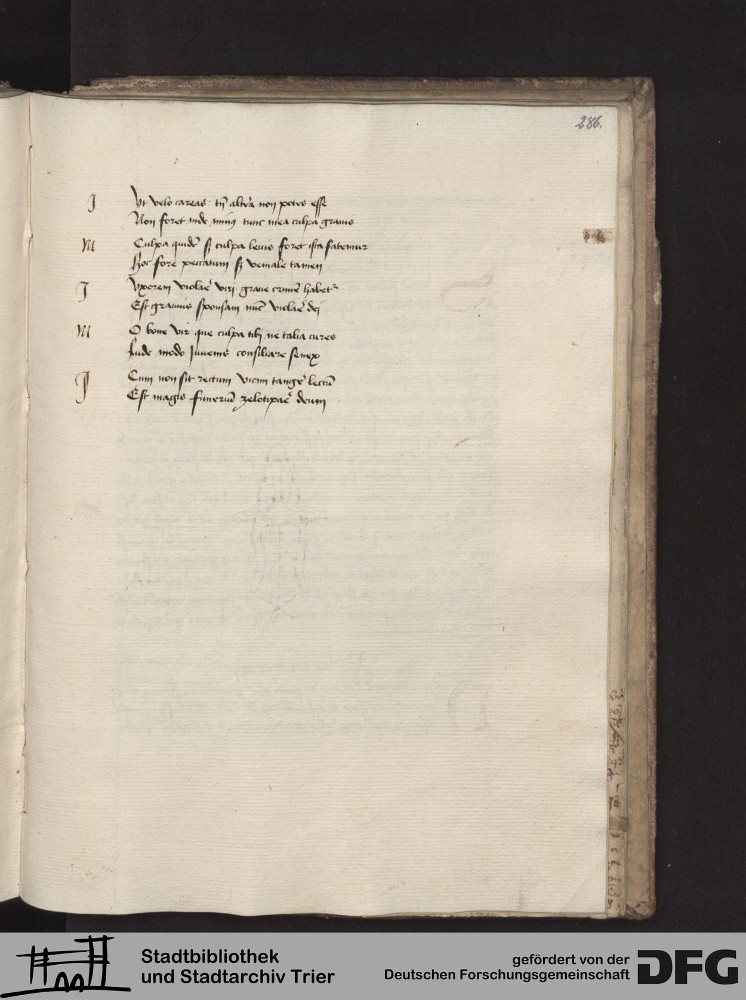 286.
J Ut velo careas tn̄ altera non potes esse
Non foret inde minꝰ tunc mea culpa grauis
M Culpa quidē sꝫ culpa leuis foret ista fatemur
Hoc fore peccatum sꝫ veniale tamen
J Uxorem violare viri graue crimē habetur
Est grauius sponsam nūc violare dei
M O bone vir que culpa tibi ne talia cures
Lude modo Juuenis consiliare senex
J Cum non sit rectum vicini tangere lectū
Est magis zelotipare deum
Stadtbibliothek
und Stadtarchiv Trier
gefördert von der
Deutschen Forschungsgemeinschaft
DFG